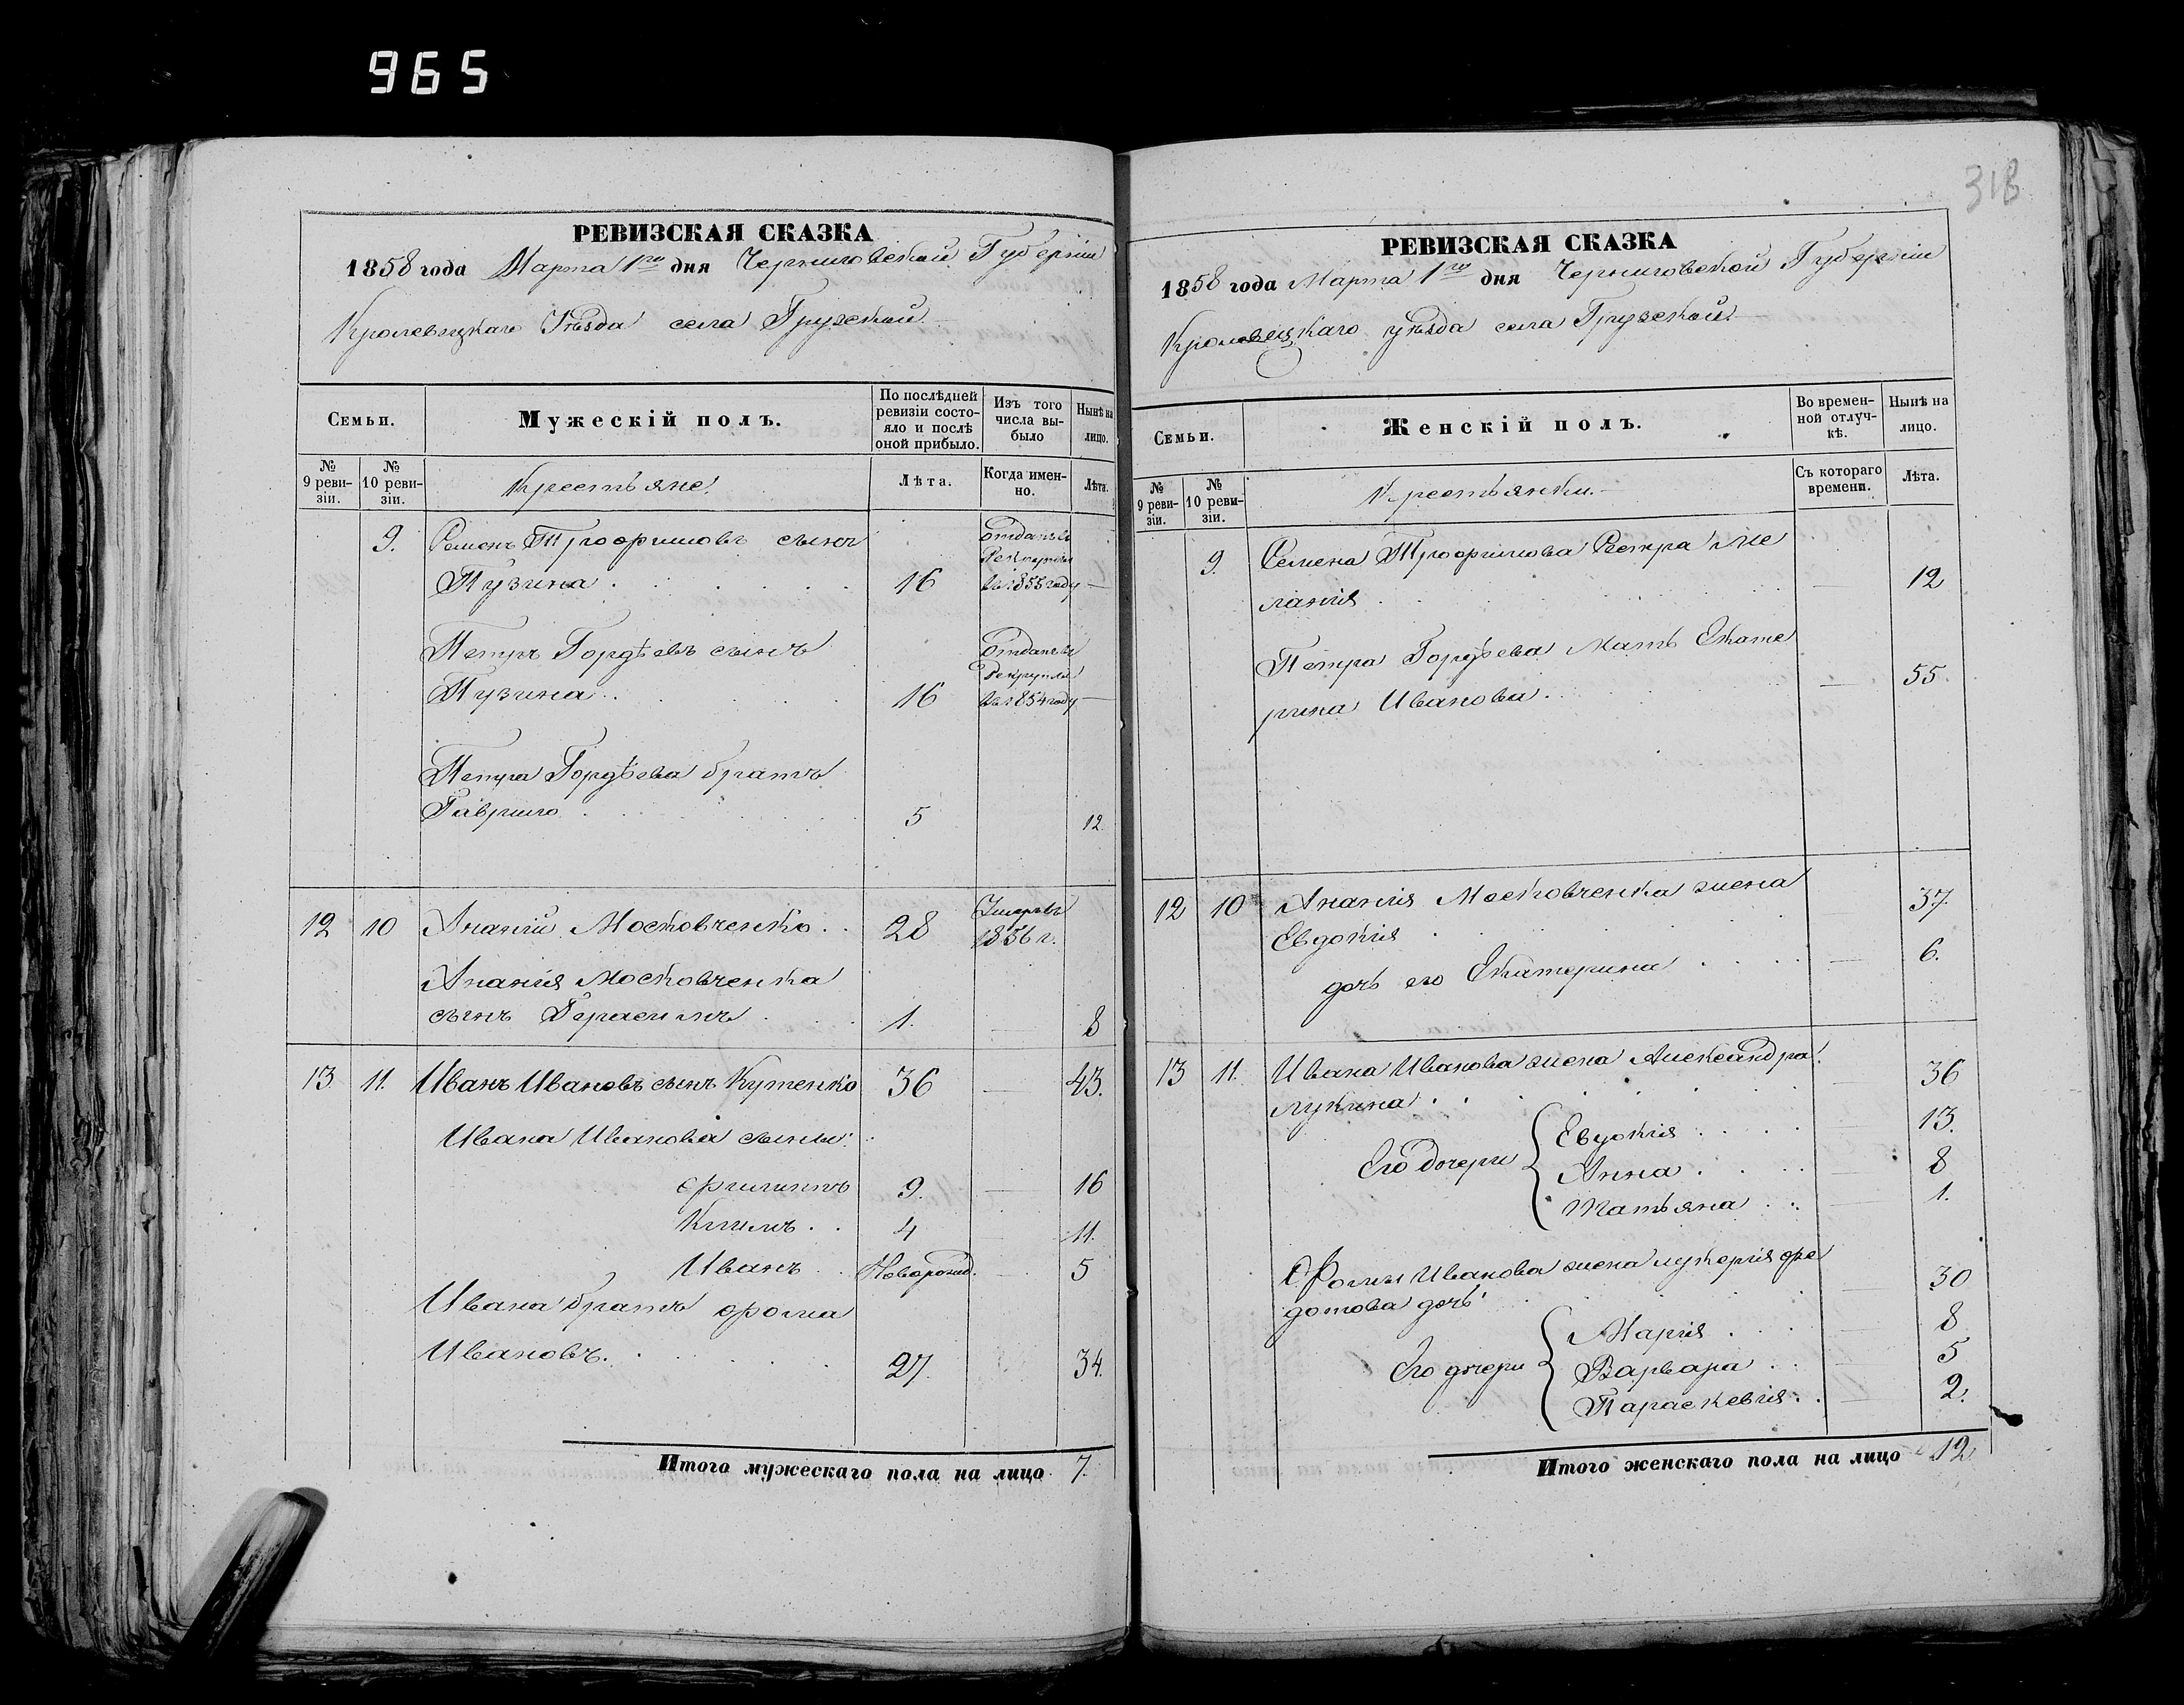 965
318
РЕВИЗСКАЯ СКАЗКА
1858 года Марта 1го дня Черниговской Губерніи
Кролевецкаго Уѣзда села Грузской
Семьи. Мужескій полъ. По послѣдней ревизіи состояло и послѣ оной прибыло. Изъ того числа выбыло Нынѣ на лицо.
№ 9 ревизіи. № 10 ревизіи. Крестьяне. Лѣта. Когда именно. Лѣта.
9. Семенъ Трофимовъ сынъ отданъ въ Рекруты
Пузина 16 въ 1855 году —
Петръ Гордѣевъ сынъ отданъ въ Рекруты
Пузина 16 въ 1854 году —
Петра Гордѣева братъ
Гаврило 5 12
12 10 Ананій Московченко 28 Умеръ въ 1856 г.
Ананія Московченка
сынъ Герасимъ 1. 8
13 11. Иванъ Ивановъ сынъ Кутенко 36 — 43.
Ивана Иванова сыны:
Филипъ 9. — 16
Климъ 4 11.
Иванъ Новорожд. — 5
Ивана братъ Фома
Ивановъ. 27. 34.
Итого мужескаго пола на лицо 7.
РЕВИЗСКАЯ СКАЗКА
1858 года Марта 1го дня Черниговской Губерніи
Кролевецкаго уѣзда села Грузской
Семьи. Женскій полъ. Во временной отлучкѣ. Нынѣ на лицо.
№ 9 ревизіи. № 10 ревизіи. Крестьянки. Съ котораго времени. Лѣта.
9. Семена Трофимова Сестра Ме
ланія — 12
Петра Гордѣева Мать Екате
рина Иванова — 55.
12 10 Ананія Московченка жена
Евдокія 37.
дочь его Екатерина — 6.
13 11. Ивана Иванова жена Александра
Лукина — 36
Его дочери Евдокія 13.
Анна 8
Татьяна 1.
Фомы Иванова жена Лукерія Фе
дотова дочь 30
Его дочери Марія 8
Варвара 5
Параскевія 2.
Итого женскаго пола на лицо 12